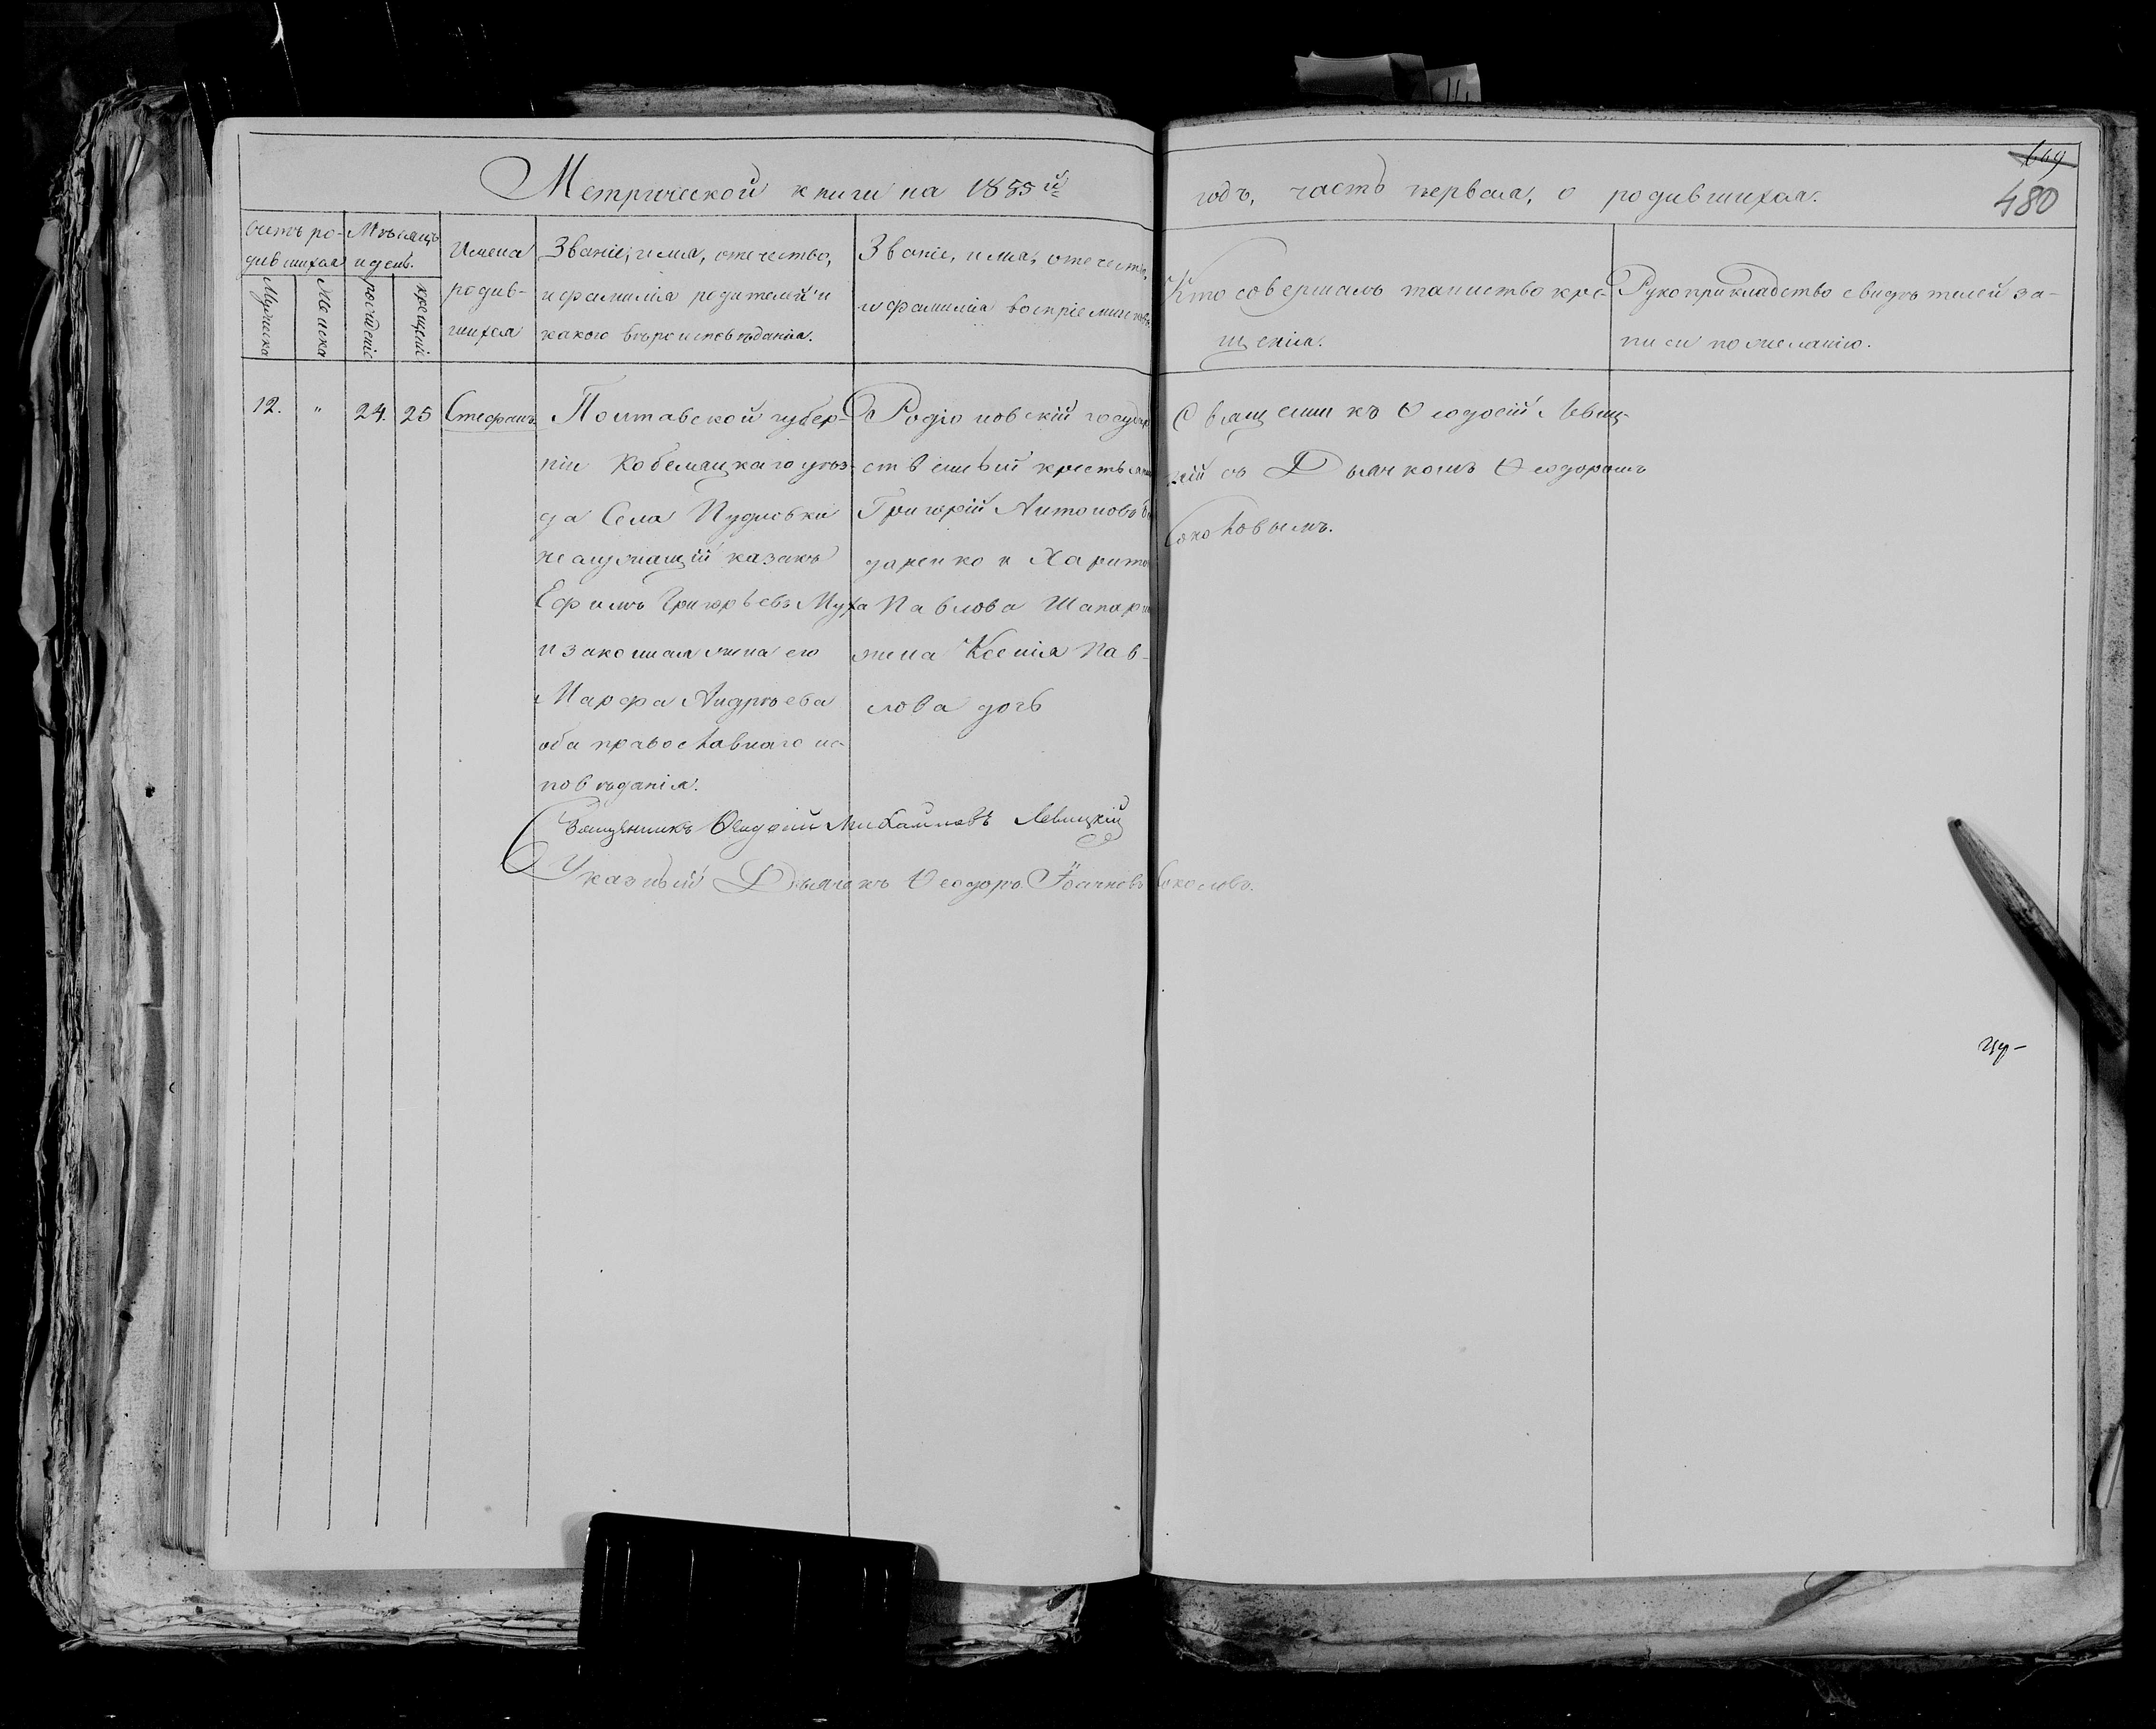 Метрической книги на 1855й
годъ, часть первая, о родившихся.
669
480
Счетъ ро-
дившихся
Мѣсяцъ
и день.
Мужеска
Женска
рожденіе
крещеніе
Имена
родив-
шихся
Званіе, имя, отечество,
и фамилія родителей и
какого вѣроисповѣданія.
Званіе, имя, отечество,
и фамилія воспріемниковъ
Кто совершалъ таинство кре-
щенія.
Рукоприкладство свидѣтелей за-
писи по желанію.
12. " 24. 25 Стефанъ
Полтавской губер-
ніи Кобеляцкаго уѣз-
да Села
неслужащій казакъ
Ефимъ Григорьевъ Муха
и законная жена его
Марфа Андрѣева
оба православнаго ис-
повѣданія.
Родіоновскій государ
ственный крестьянинъ
Григорій Антоновъ Бон
даренко и Харитона
Павлова
жена Ксенія Пав-
лова дочь
Священникъ Ѳеодосій Левиц-
кій съ Дьячкомъ Ѳеодоромъ
Соколовымъ.
Священникъ Ѳеодосій Михайловъ Левицкій
Указный Дьячекъ Ѳеодоръ Іоанновъ Соколовъ.